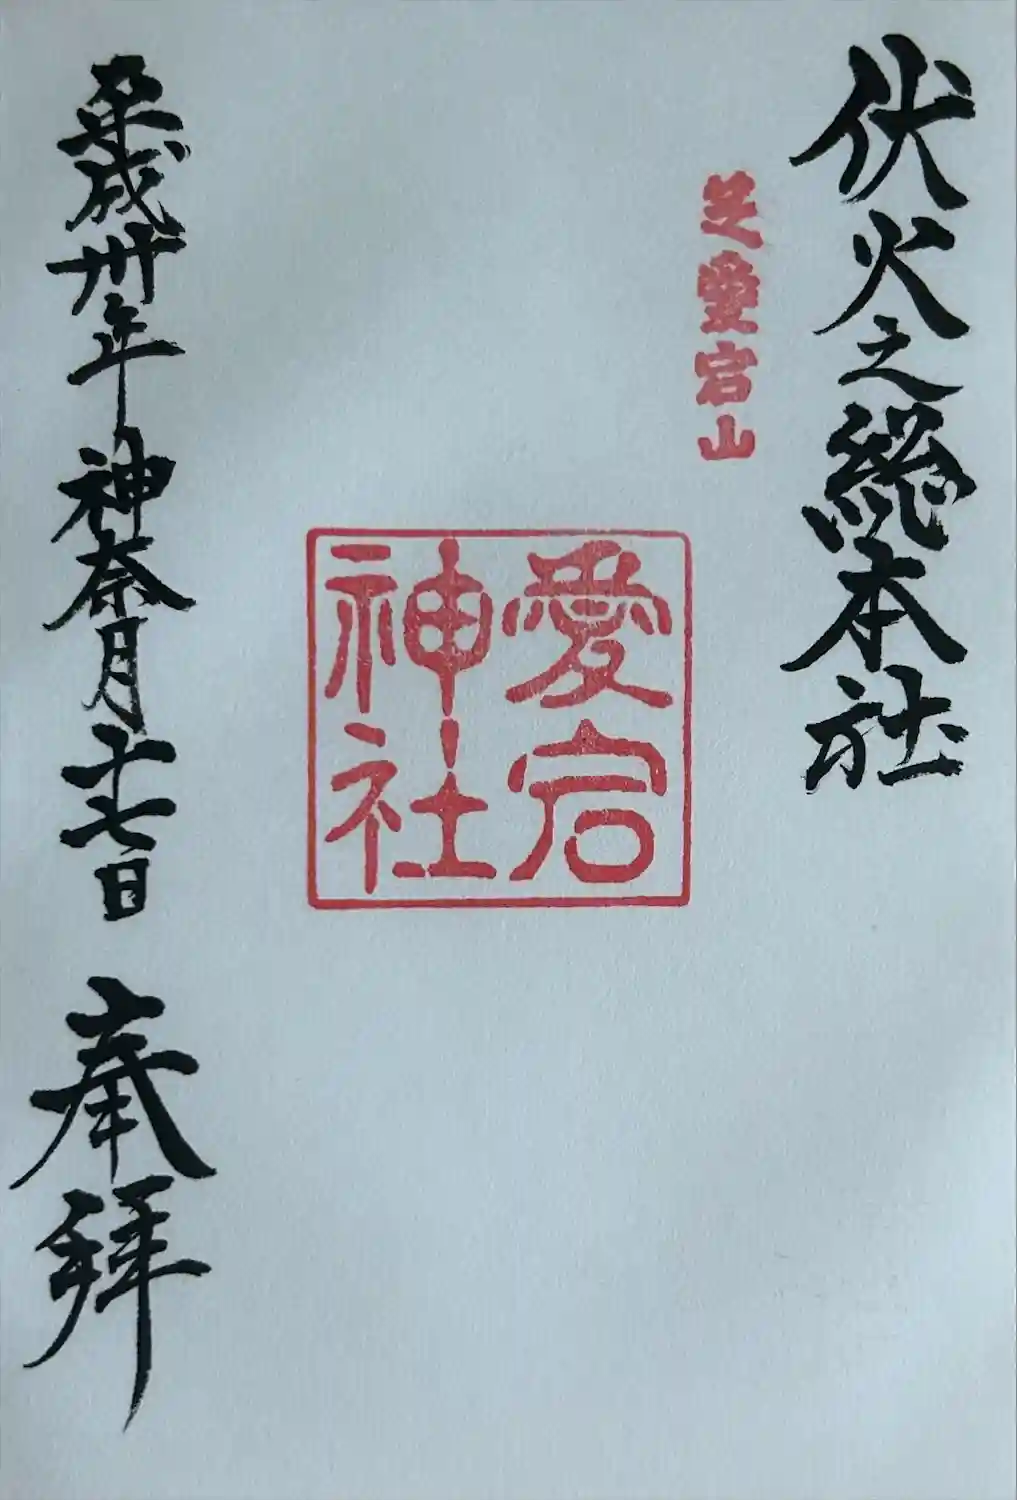 伏火之総本社
芝愛宕山
愛宕
神社
平成卅年神奈月十七日 奉拝